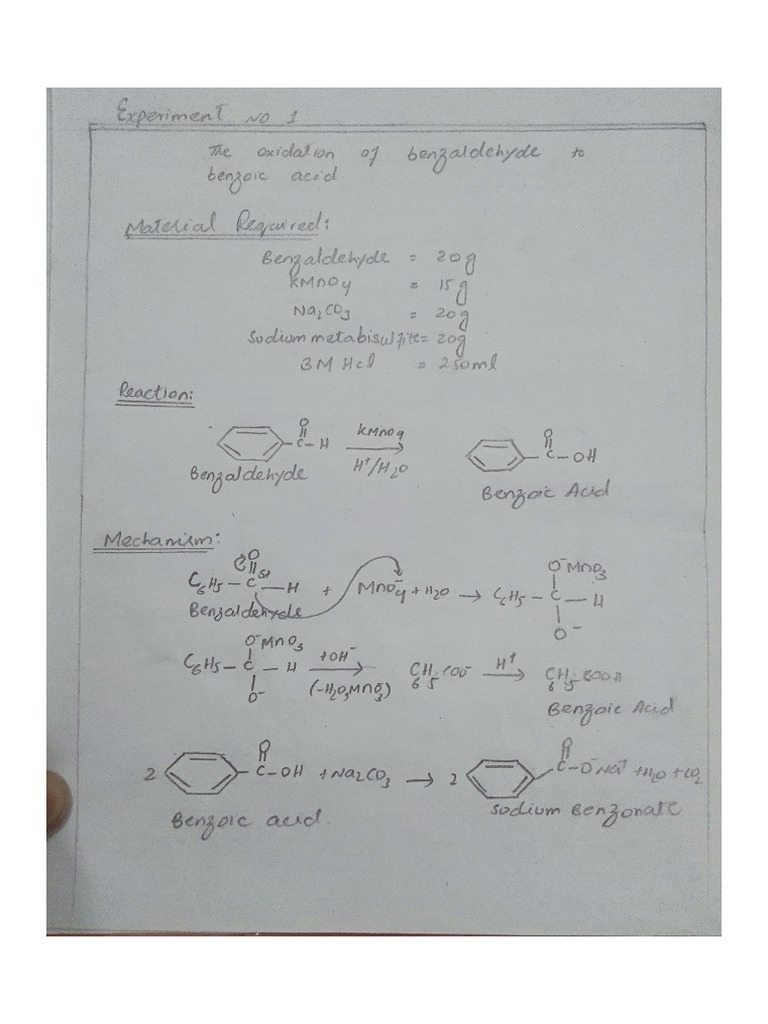 Experiment No 1
The oxidation of benzaldehyde to
benzoic acid
Material Required:
Benzaldehyde = 20g
KMnO4 = 15g
Na2CO3 = 20g
Sodium metabisulfite = 20g
3M HCl = 250ml
Reaction:
O
C - H
KMnO4
H+/H2O
O
C - OH
Benzaldehyde
Benzoic Acid
Mechanism:
O
C6H5 - C - H + MnO4- + H2O → C6H5 - C - H
O-MnO3
O-
Benzaldehyde
O-MnO3
C6H5 - C - H +OH- → C6H5COO- H+ → C6H5COOH
O-
(-H2O, MnO3-)
Benzoic Acid
O
2 C - OH + Na2CO3 → 2 C - O-Na+ + H2O + CO2
O
Benzoic acid.
Sodium Benzonate